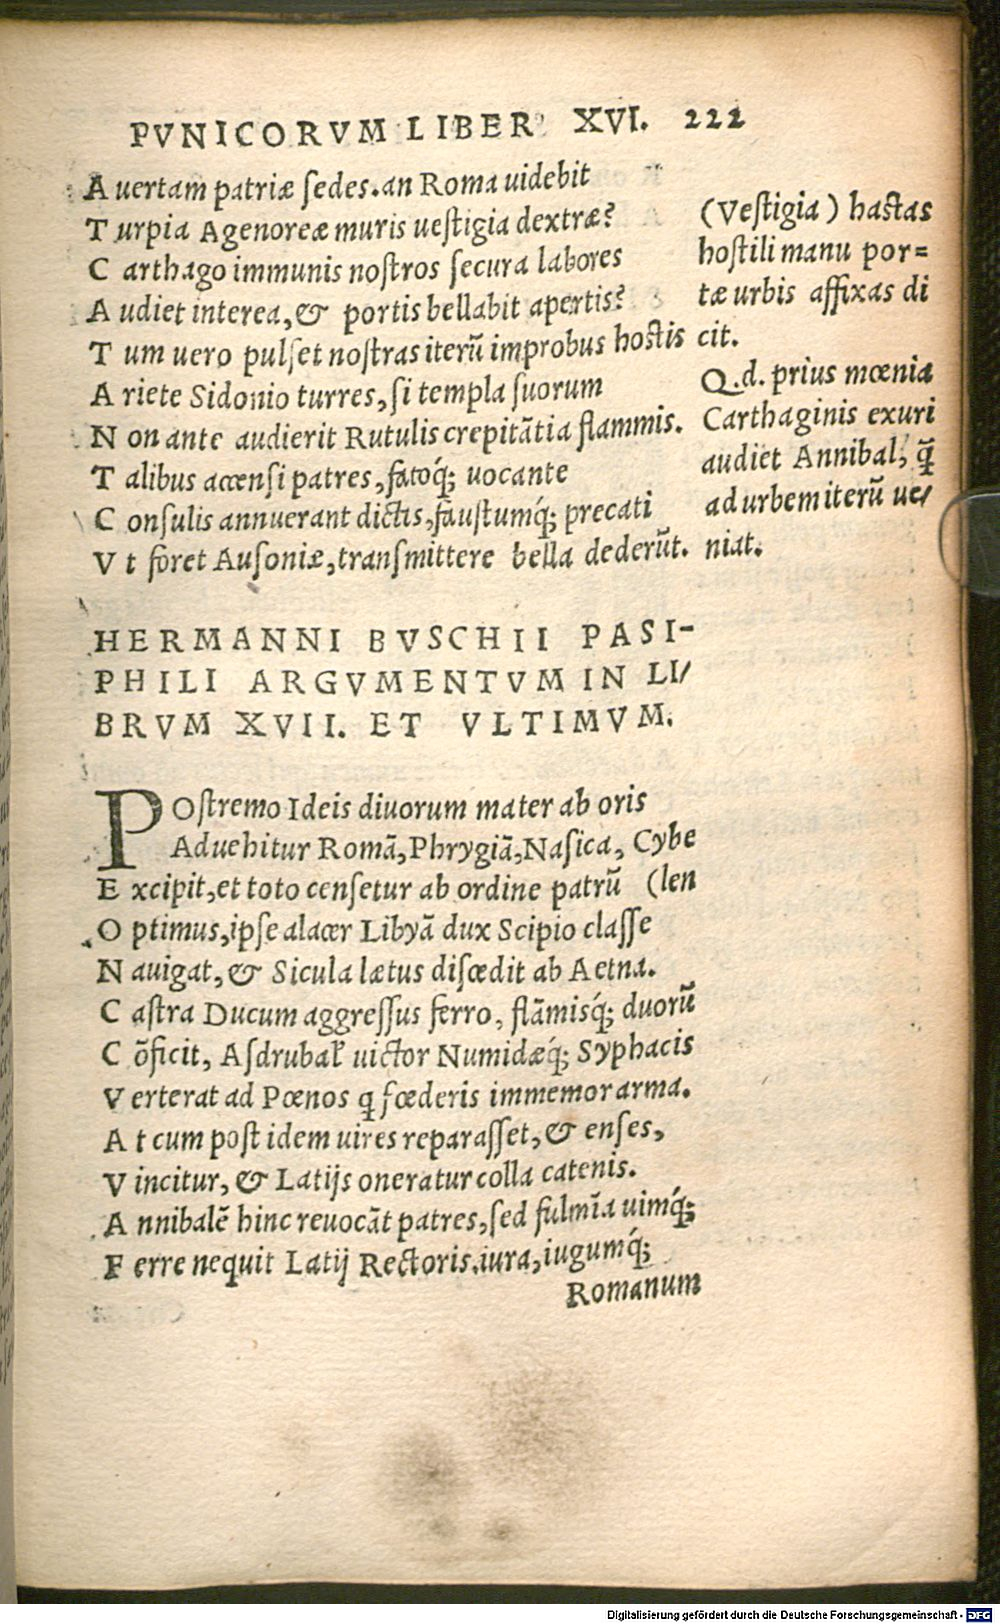 PVNICORVM LIBER XVI. 222
A uertam patriæ ſedes. an Roma uidebit
T urpia Agenoreæ muris ueſtigia dextræ?
C arthago immunis noſtros ſecura labores
A udiet interea, & portis bellabit apertis?
T um uero pulſet noſtras iterū improbus hoſtis
A riete Sidonio turres, ſi templa ſuorum
N on ante audierit Rutulis crepitātia flammis.
T alibus accenſi patres, fatoq́; uocante
C onſulis annuerant dictis, fauſtumq́; precati
V t foret Auſoniæ, transmittere bella dederūt.
(Veſtigia) haſtas
hoſtili manu por=
tæ urbis affixas di
cit.
Q.d. prius mœnia
Carthaginis exuri
audiet Annibal, q̄
ad urbem iterū ue/
niat.
HERMANNI BVSCHII PASI-
PHILI ARGVMENTVM IN LI/
BRVM XVII. ET VLTIMVM.
POſtremo Ideis diuorum mater ab oris
Aduehitur Romā, Phrygiā, Naſica, Cybe
E xcipit, et toto cenſetur ab ordine patrū (len
O ptimus, ipſe alacer Libyā dux Scipio claſſe
N auigat, & Sicula lætus diſcedit ab Aetna.
C aſtra Ducum aggreſſus ferro, flāmisq́; duorū
C ōficit, Aſdrubal' uictor Numidæq́; Syphacis
V erterat ad Pœnos q fœderis immemor arma.
A t cum poſt idem uires reparaſſet, & enſes,
V incitur, & Latijs oneratur colla catenis.
A nnibalē hinc reuocāt patres, ſed fulmīa uimq́;
F erre nequit Latij Rectoris, iura, iugumq́;
Romanum
Digitalisierung gefördert durch die Deutsche Forschungsgemeinschaft - DFG